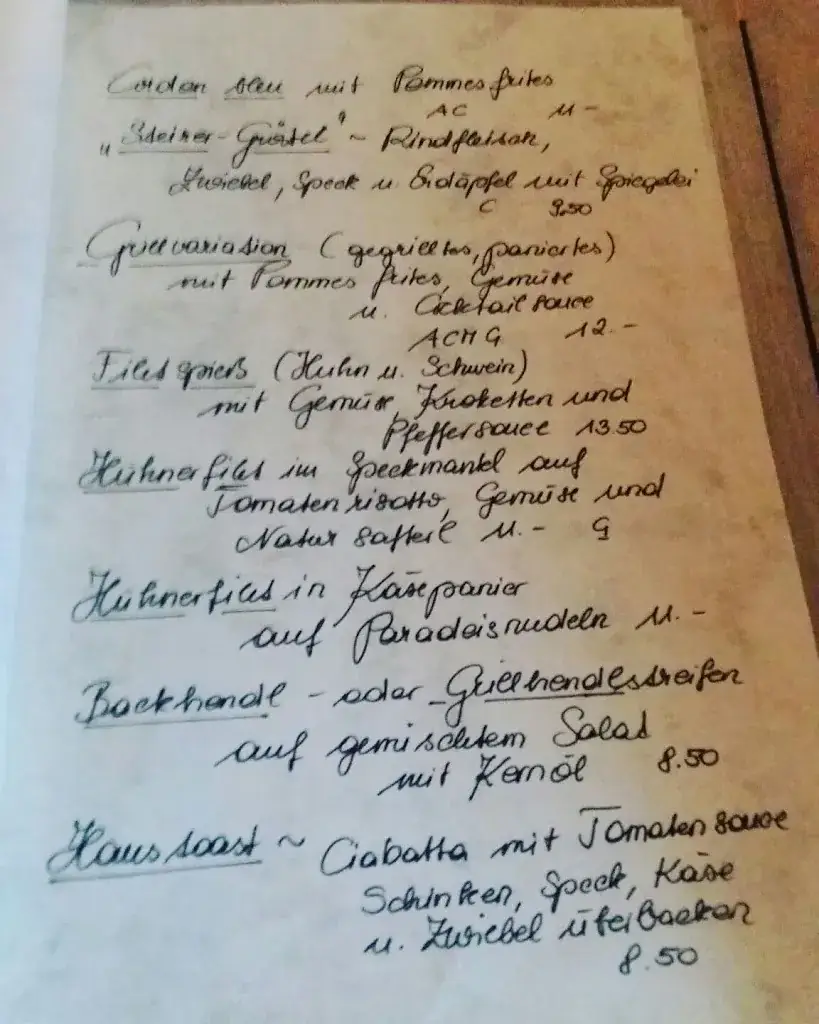 Cordon bleu mit Pommes frites
AC 11 -
"Steirer-Gröstel" ~ Rindfleisch,
Zwiebel, Speck u. Erdäpfel mit Spiegelei
C 9.50
Grillvariation (gegrilltes, paniertes)
mit Pommes frites, Gemüse
u. Cocktailsauce
ACMG 12.-
Filetspieß (Huhn u. Schwein)
mit Gemüse, Kroketten und
Pfeffersauce 13.50
Hühnerfilet im Speckmantel auf
Tomatenrisotto, Gemüse und
Natursafterl 11.- G
Hühnerfilet in Käsepanier
auf Paradeisnudeln 11.-
Backhendl - oder - Grillhendlstreifen
auf gemischtem Salat
mit Kernöl 8.50
Haustoast ~ Ciabatta mit Tomatensauce
Schinken, Speck, Käse
u. Zwiebel überbacken
8.50